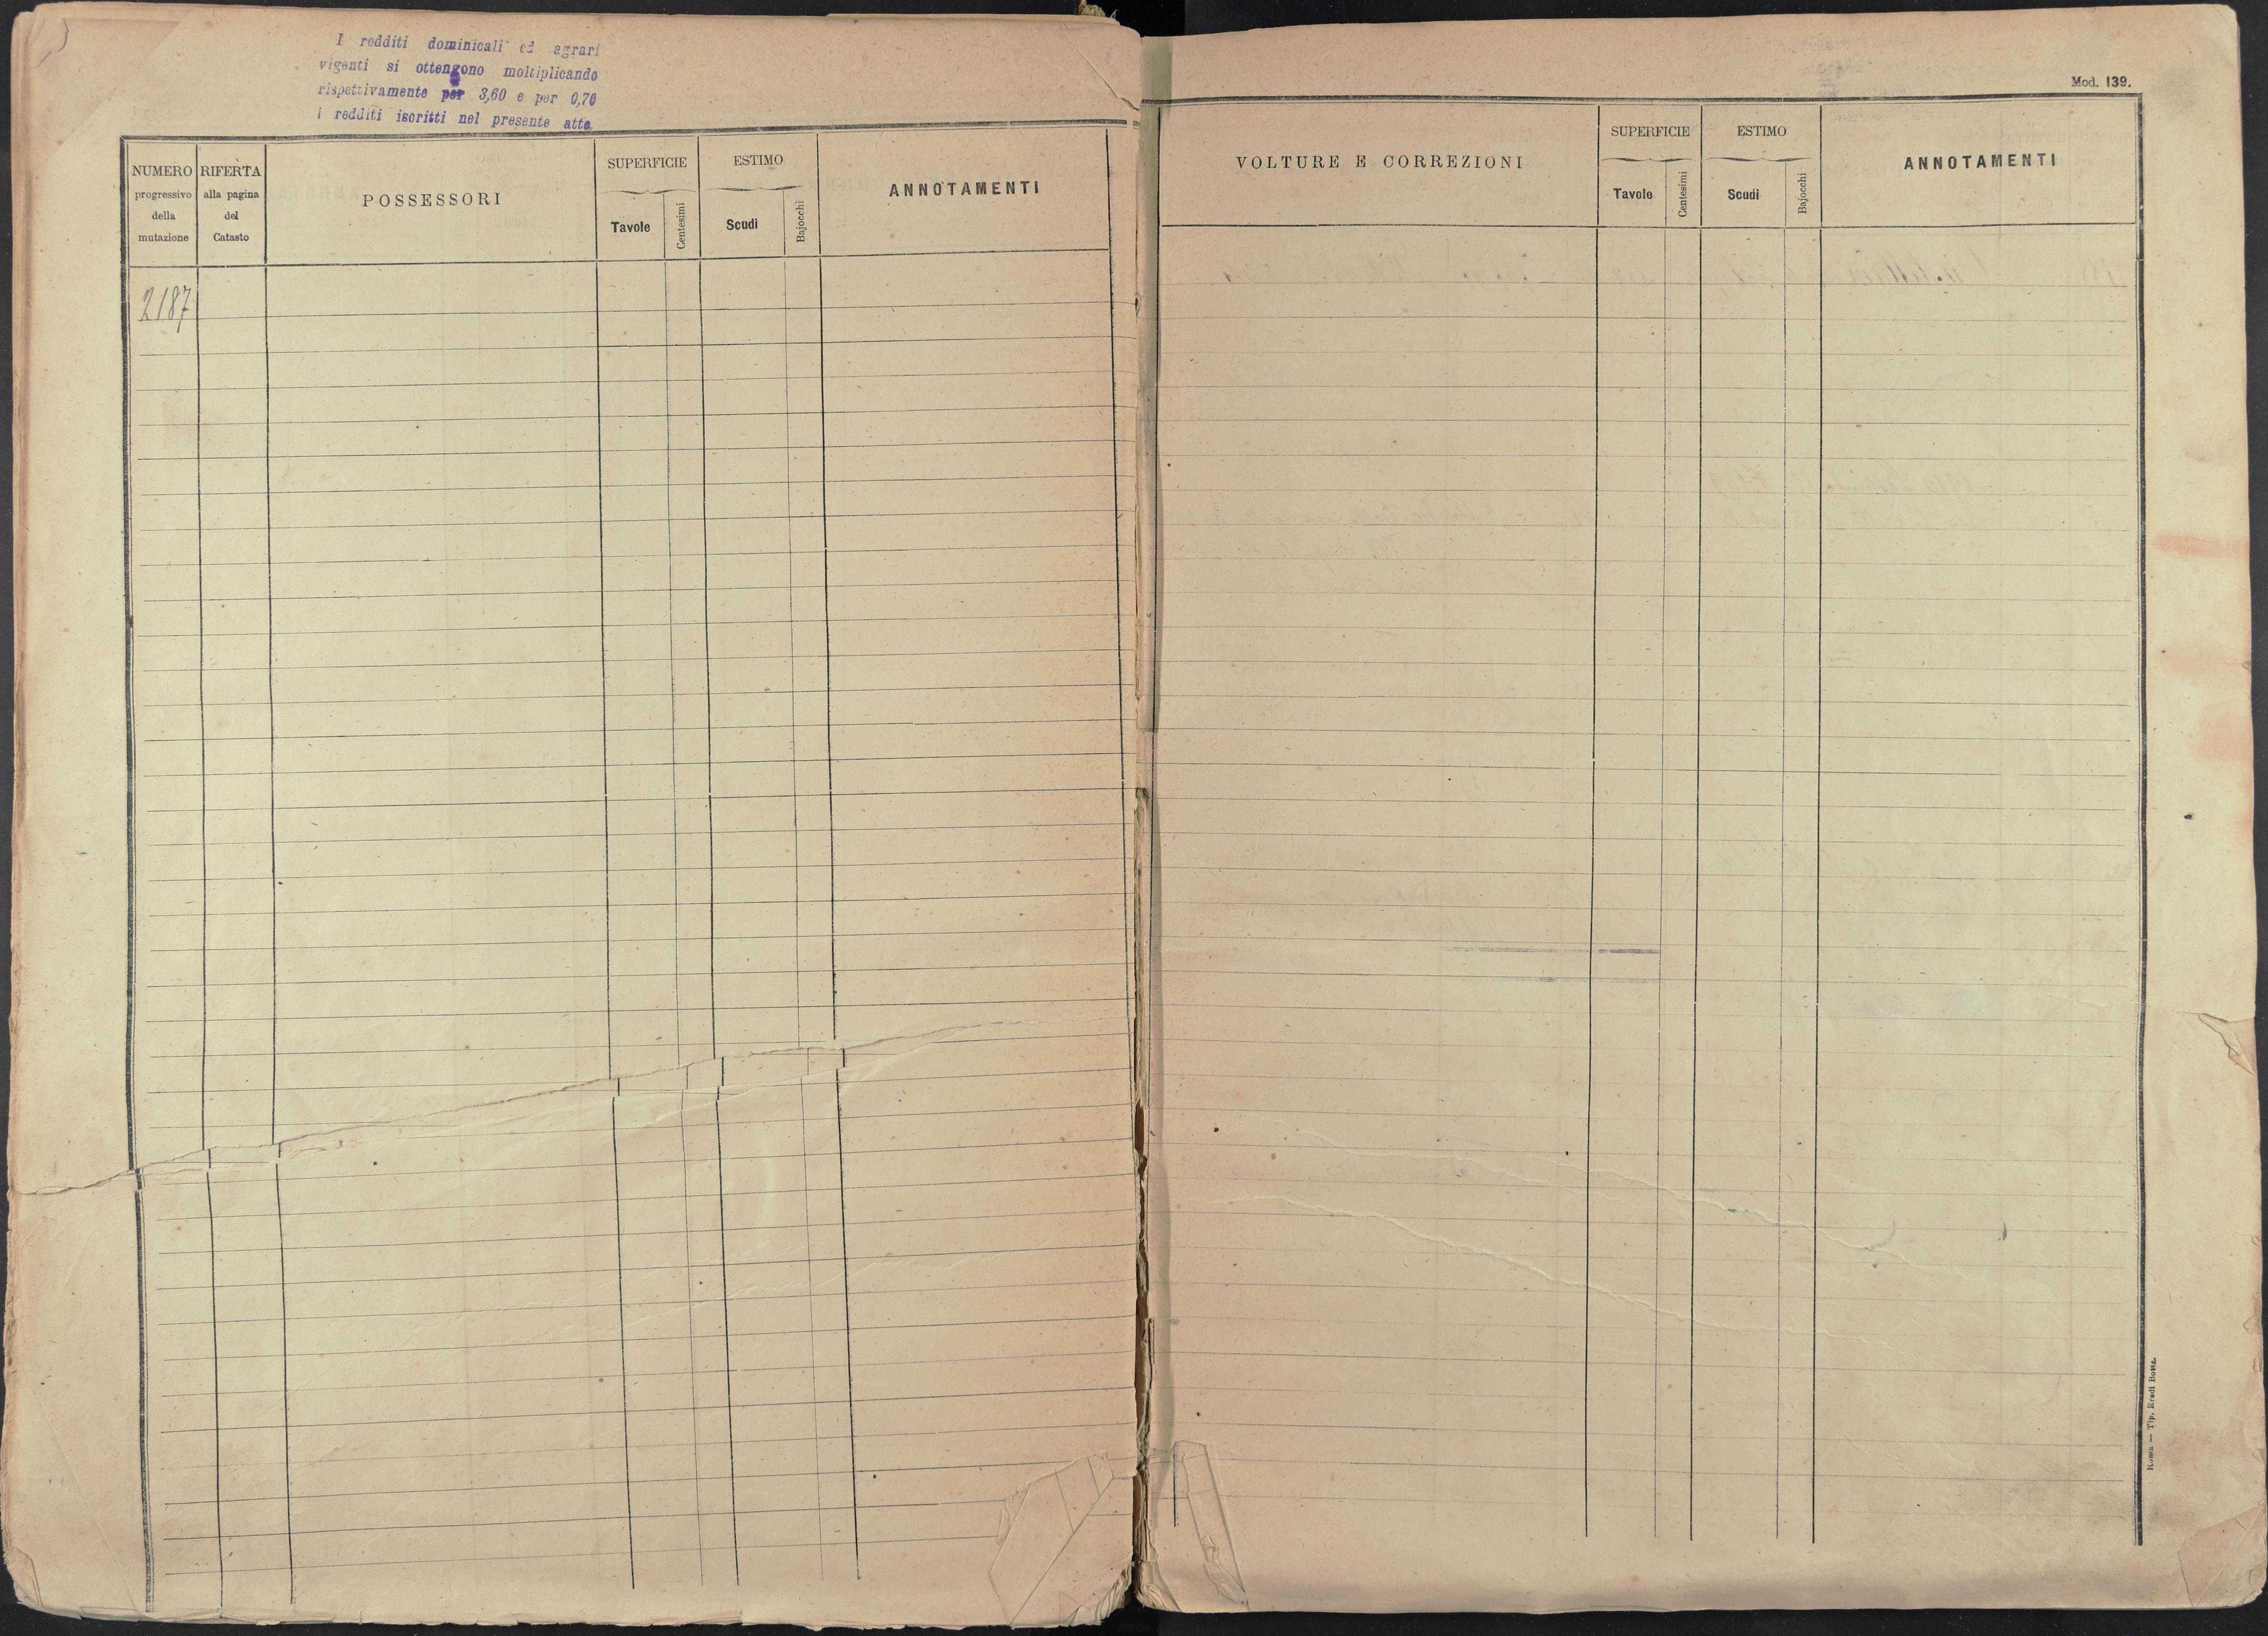 I redditi dominicali ed agrari
vigenti si ottengono moltiplicando
rispettivamente per 3,60 e per 0,70
i redditi iscritti nel presente atto.
NUMERO
progressivo
della
mutazione
RIFERTA
alla pagina
del
Catasto
POSSESSORI
SUPERFICIE
Tavole
Centesimi
ESTIMO
Scudi
Bajocchi
ANNOTAMENTI
2187
Mod. 139.
VOLTURE E CORREZIONI
SUPERFICIE
Tavole
Centesimi
ESTIMO
Scudi
Bajocchi
ANNOTAMENTI
Roma — Tip. Eredi Botta.